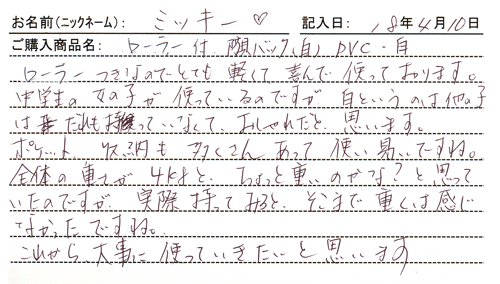 お名前(ニックネーム): ミッキー♡ 記入日: '18年4月10日
ご購入商品名: ローラー付 願バック(自) PVC・自
ローラーつきなのでとても軽くて喜んで使っております。
中学生の女の子が使っているのですが白というのは他の子
はまだだれも持っていなくて、おしゃれだと思います。
ポケット 収納も たくさん あって 使い易いですね。
全体の重さが 4kgと、ちょっと重いのかな?と思って
いたのですが 実際 持ってみると、そこまで 重くは感じ
なかったですね。
これから、大事に 使っていきたいと思います